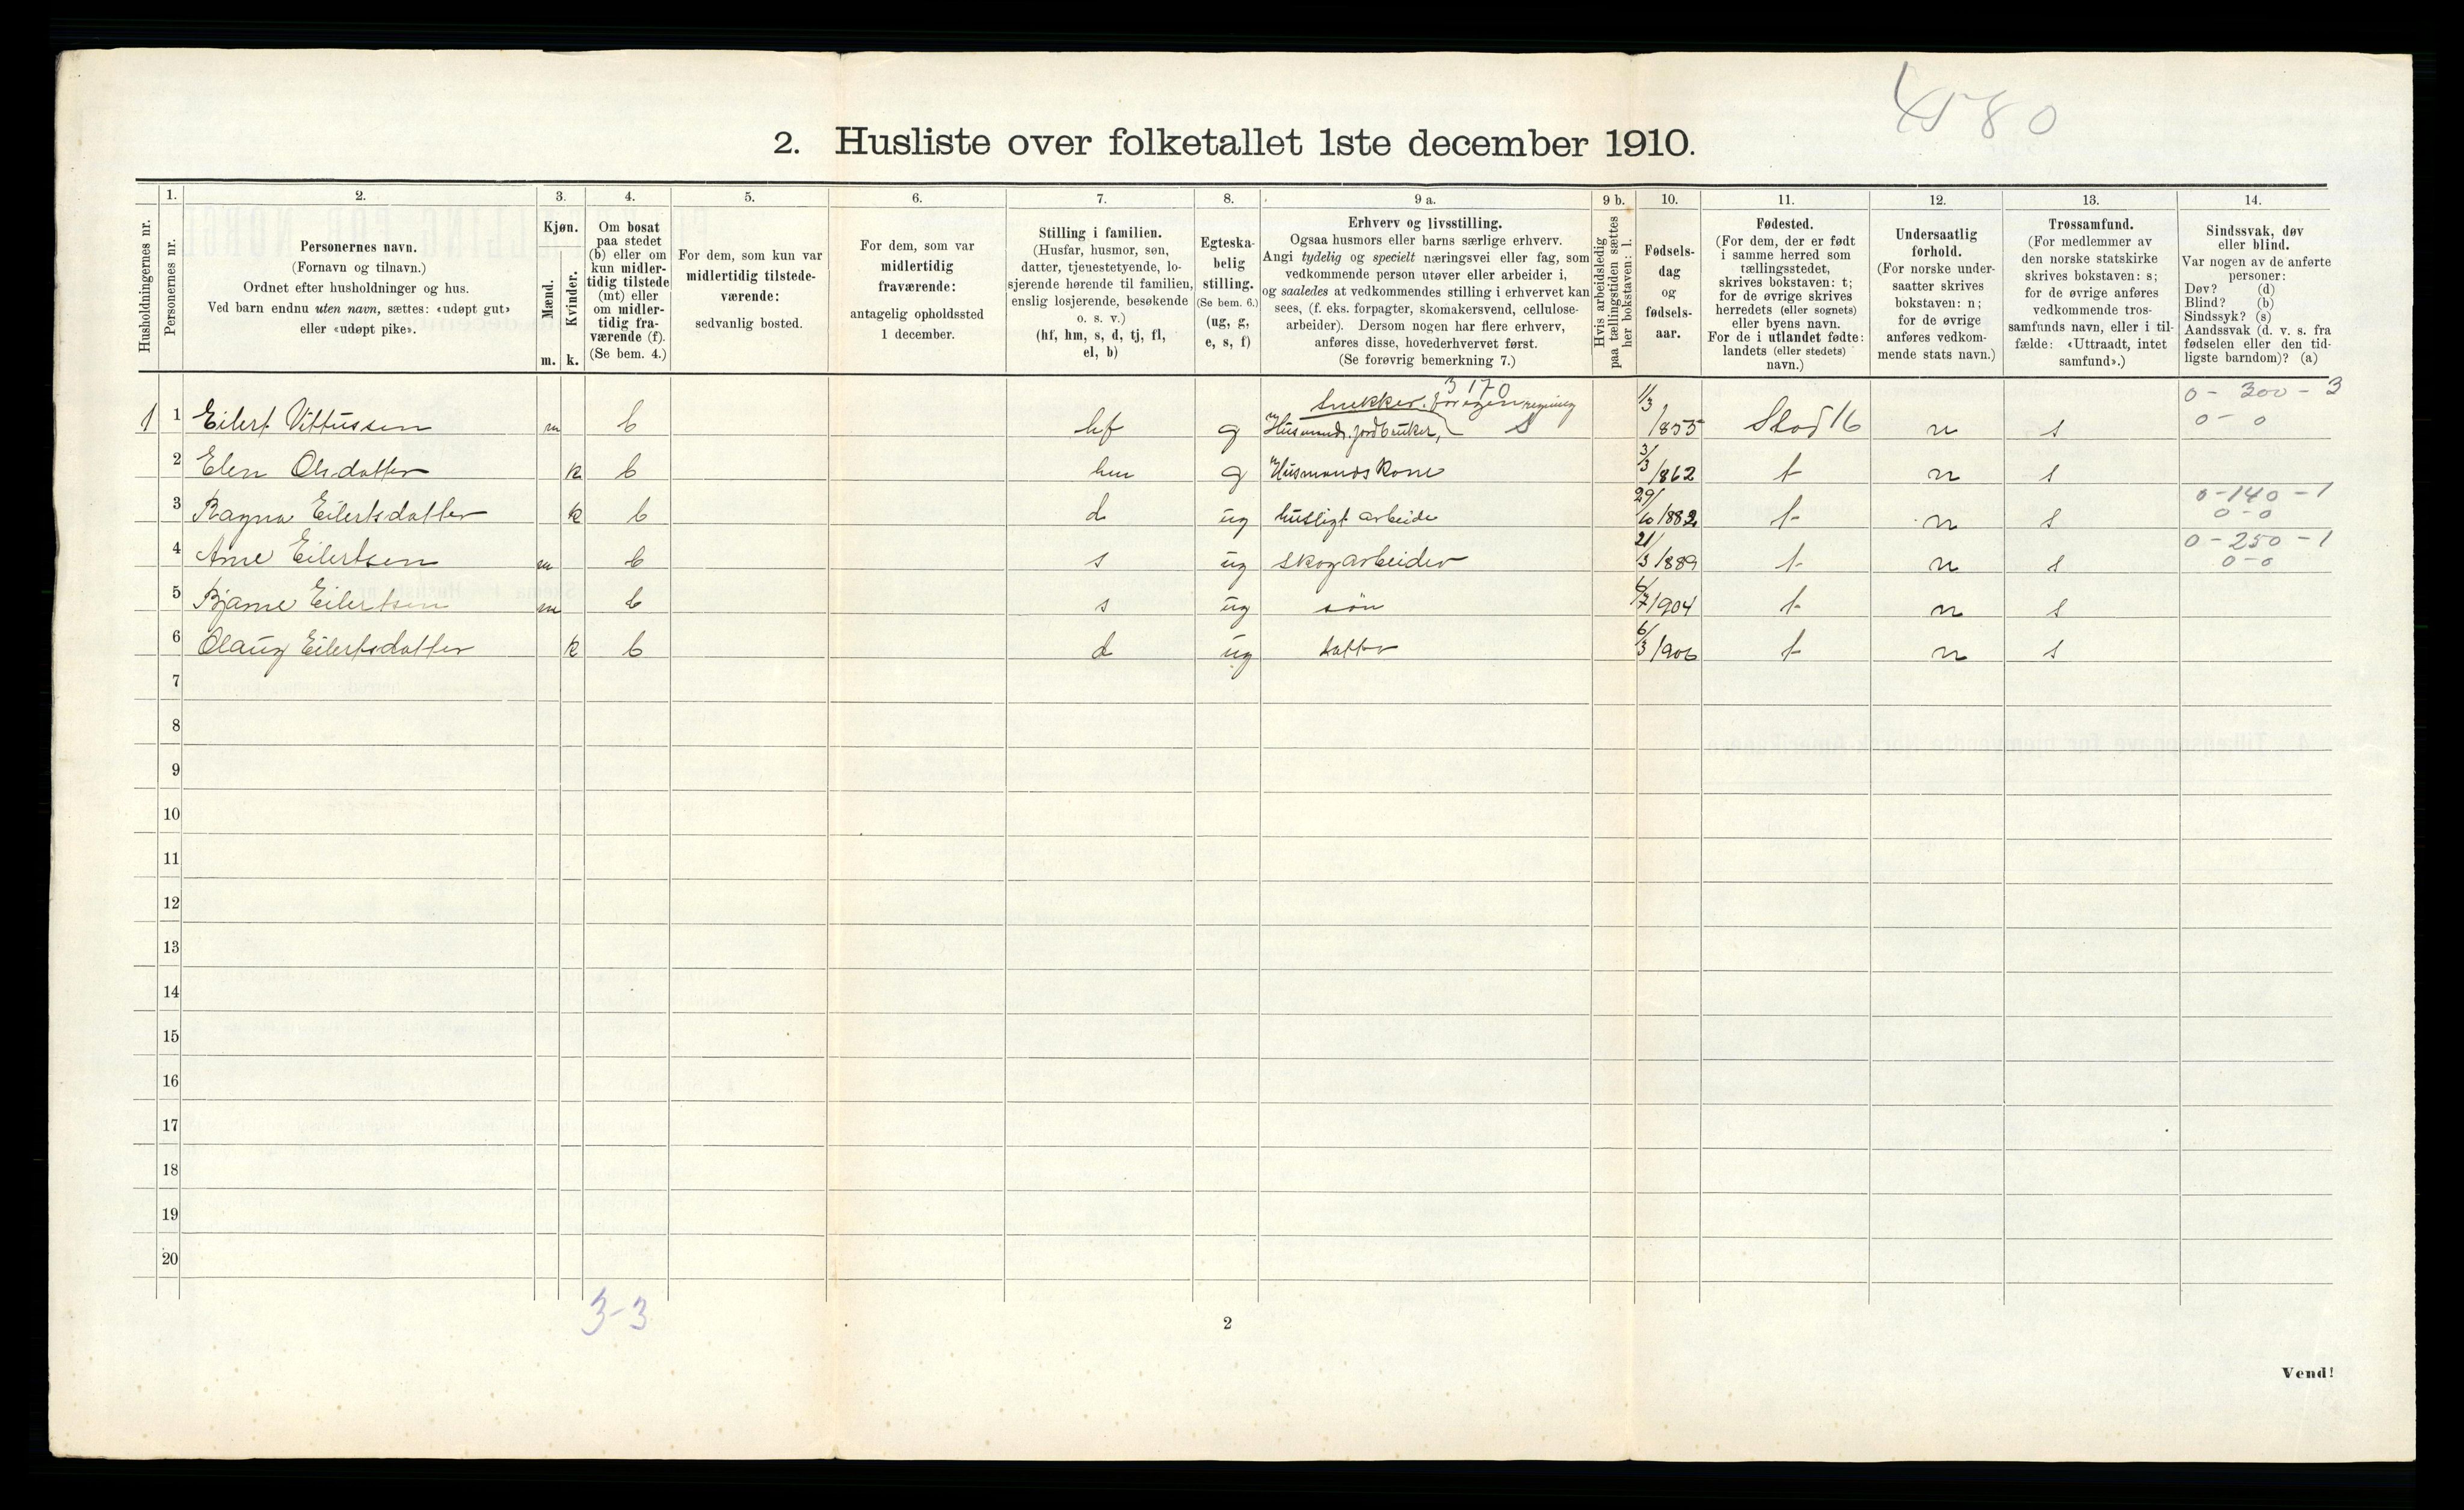 4580
2. Husliste over folketallet 1ste december 1910.
Husholdningernes nr.
1.
Personernes nr.
2.
Personernes navn.
(Fornavn og tilnavn.)
Ordnet efter husholdninger og hus.
Ved barn endnu uten navn, sættes: «udøpt gut»
eller «udøpt pike».
3.
Kjøn.
Mænd.
m.
Kvinder.
k.
4.
Om bosat
paa stedet
(b) eller om
kun midler-
tidig tilstede
(mt) eller
om midler-
tidig fra-
værende (f).
(Se bem. 4.)
5.
For dem, som kun var
midlertidig tilstede-
værende:
sedvanlig bosted.
6.
For dem, som var
midlertidig
fraværende:
antagelig opholdssted
1 december.
7.
Stilling i familien.
(Husfar, husmor, søn,
datter, tjenestetyende, lo-
sjerende hørende til familien,
enslig losjerende, besøkende
o. s. v.)
(hf, hm, s, d, tj, fl,
el, b)
8.
Egteska-
belig
stilling.
(Se bem. 6.)
(ug, g,
e, s, f)
9 a.
Erhverv og livsstilling.
Ogsaa husmors eller barns særlige erhverv.
Angi tydelig og specielt næringsvei eller fag, som
vedkommende person utøver eller arbeider i,
og saaledes at vedkommendes stilling i erhvervet kan
sees, (f. eks. forpagter, skomakersvend, cellulose-
arbeider). Dersom nogen har flere erhverv,
anføres disse, hovederhvervet først.
(Se forøvrig bemerkning 7.)
9 b.
Hvis arbeidsledig
paa tællingstiden sættes
her bokstaven: l.
10.
Fødsels-
dag
og
fødsels-
aar.
11.
Fødested.
(For dem, der er født
i samme herred som
tællingsstedet,
skrives bokstaven: t;
for de øvrige skrives
herredets (eller sognets)
eller byens navn.
For de i utlandet fødte:
landets (eller stedets)
navn.)
12.
Undersaatlig
forhold.
(For norske under-
saatter skrives
bokstaven: n;
for de øvrige
anføres vedkom-
mende stats navn.)
13.
Trossamfund.
(For medlemmer av
den norske statskirke
skrives bokstaven: s;
for de øvrige anføres
vedkommende tros-
samfunds navn, eller i til-
fælde: «Uttraadt, intet
samfund».)
14.
Sindssvak, døv
eller blind.
Var nogen av de anførte
personer:
Døv? (d)
Blind? (b)
Sindssyk? (s)
Aandssvak (d. v. s. fra
fødselen eller den tid-
ligste barndom)? (a)
3170 0 - 300 - 3
Snekker for egen regning 11/3
1 1 Eilert Vittussen m b hf g Husmand, jordbruker, S 1855 Stod 16 n s 0 - 0
2 Elen Olsdatter k b hm g Husmandskone 3/3 1862 t n s
0 - 140 - 1
3 Ragna Eilertsdatter k b d ug husligt arbeide 29/10 1882 t n s 0 - 0
0 - 250 - 1
4 Arne Eilertsen m b s ug skogarbeider 21/3 1889 t n s 0 - 0
5 Bjarne Eilertsen m b s ug søn 6/7 1904 t n s
6 Olaug Eilertsdatter k b d ug datter 6/3 1906 t n s
7
8
9
10
11
12
13
14
15
16
17
18
19
20
3-3
2
Vend!